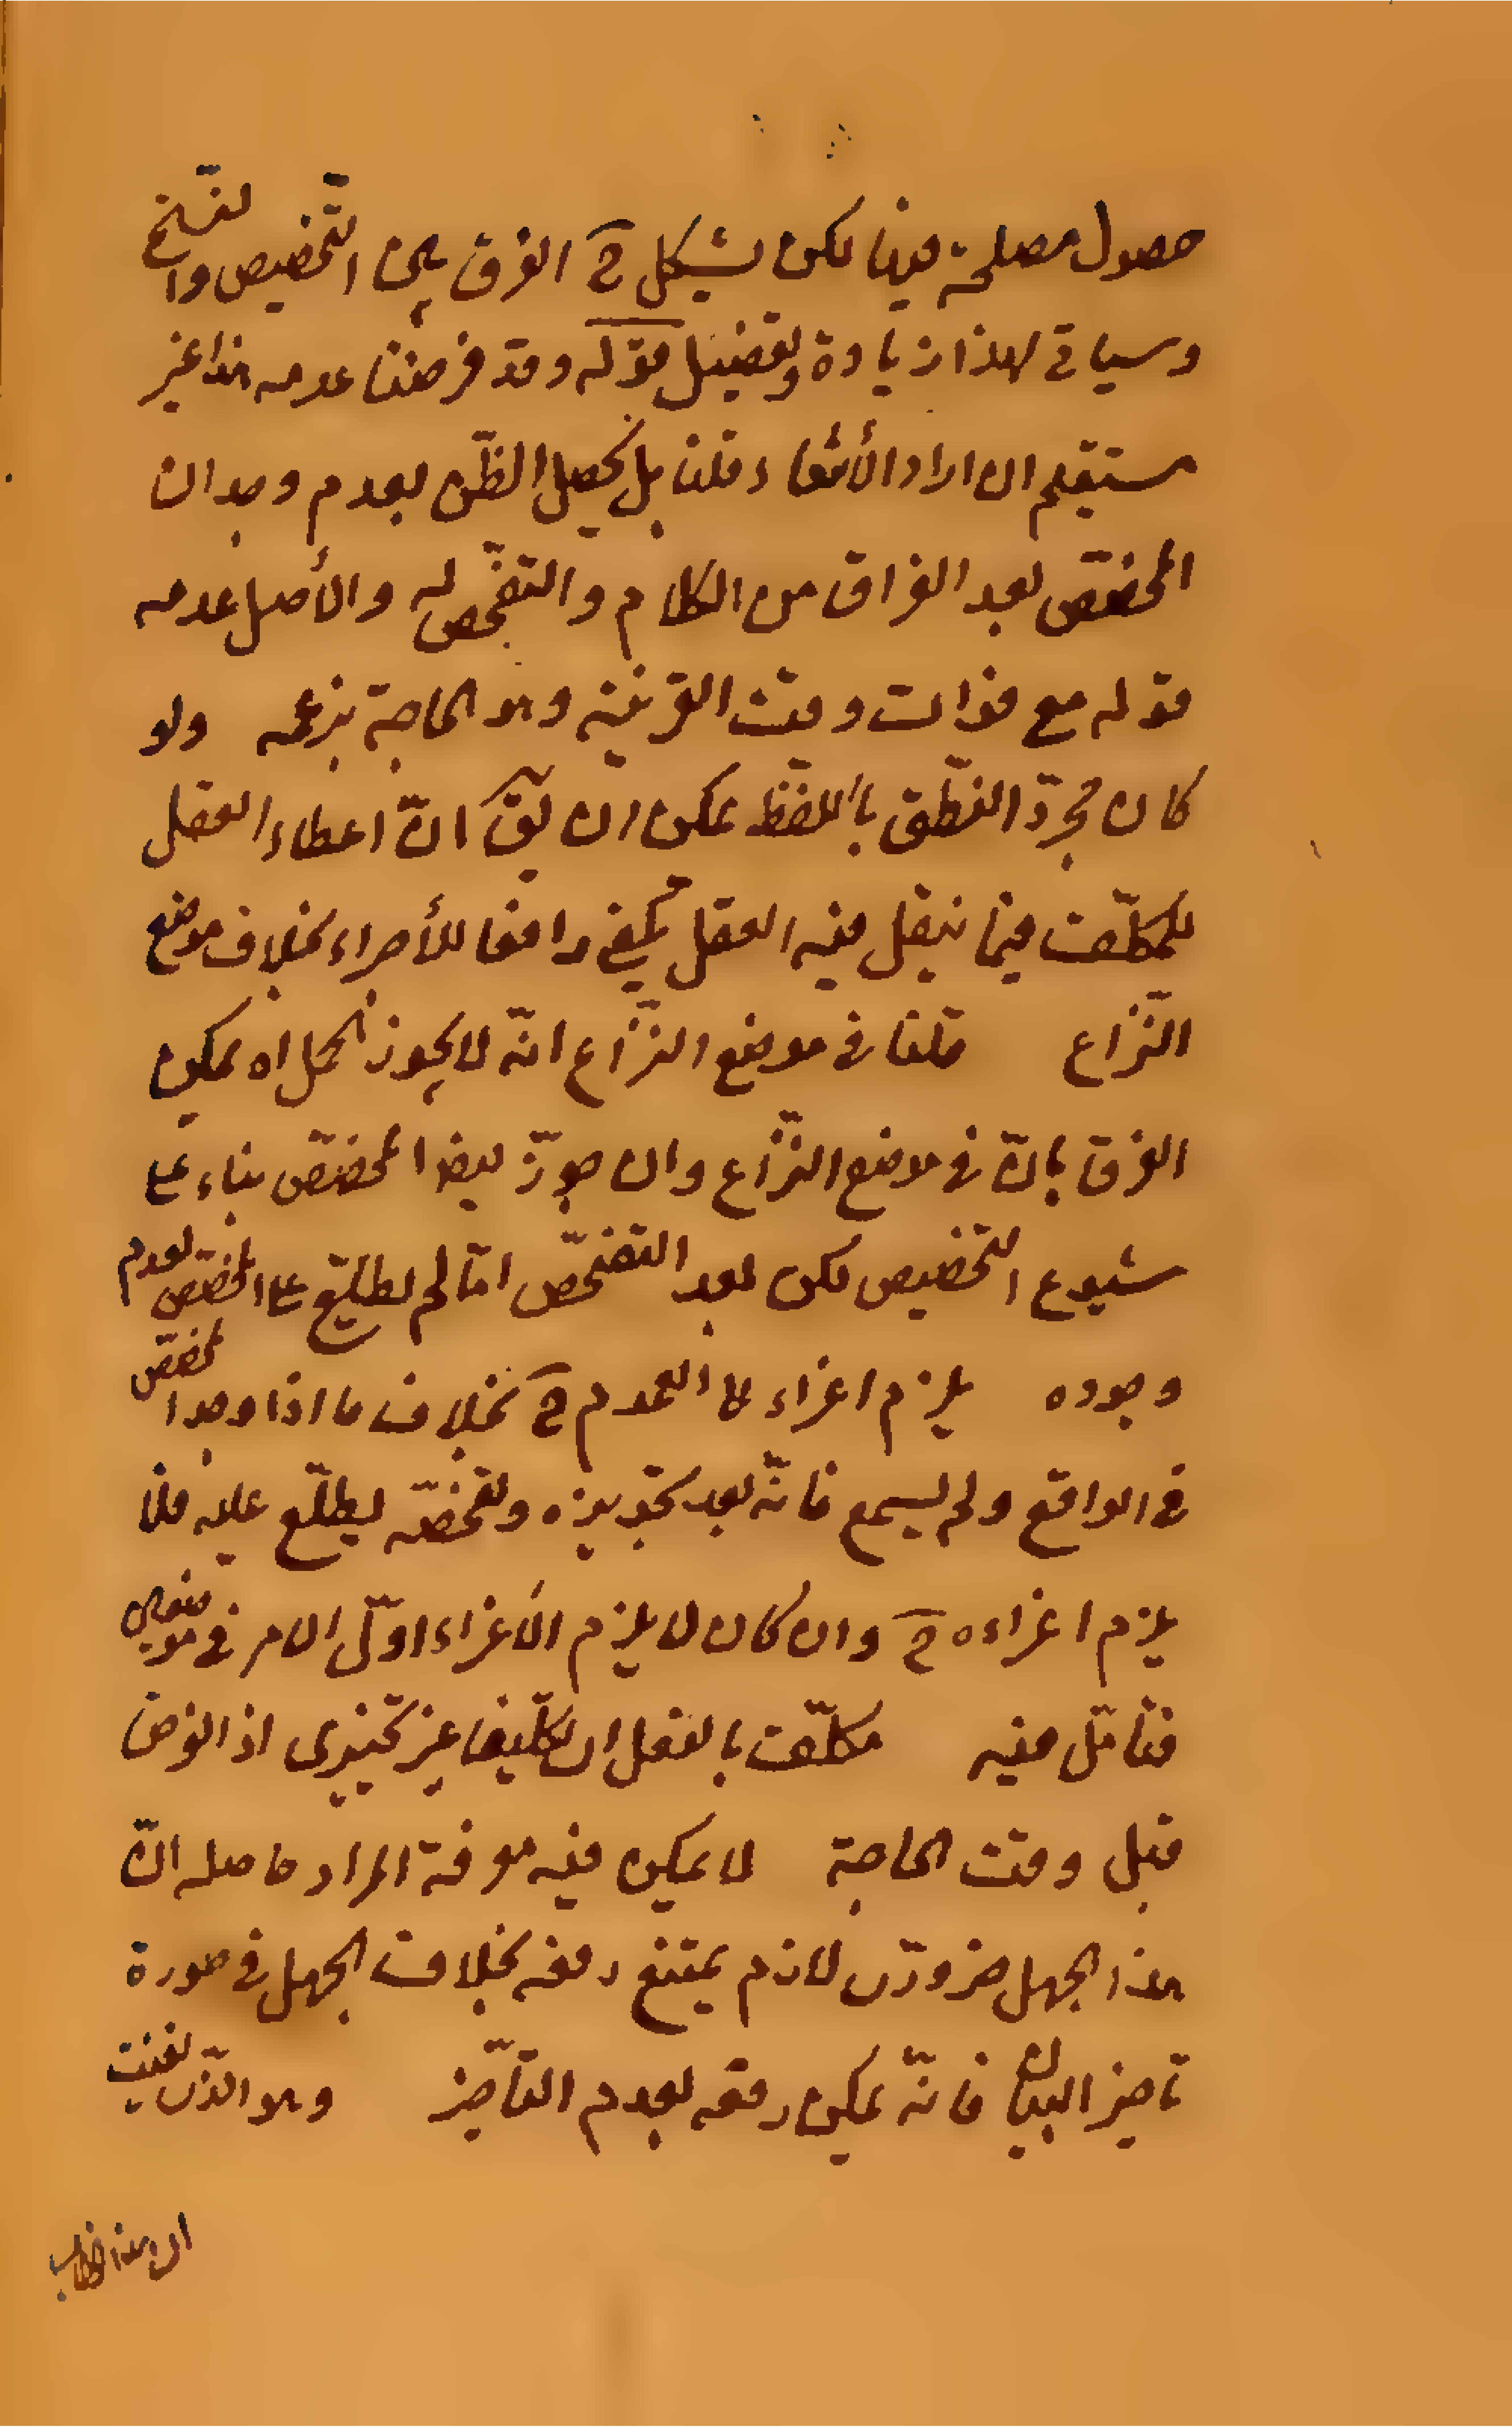 حصول مصلحة فينا لكن يشكل ح الفرق بين التخصيص والنسخ
وسياتى لهذا زيادة وتفصيل قوله وقد فرضنا عدمه هذا غير
مستقيم ان اراد الأنتفاء قلنا بل يحصل الظن بعدم وجدان
المخصّص بعد الفراق من الكلام والتفحّص له والأصل عدمه
قوله مع فوات وقت القرينة وهو الحاجة بزعمه ولو
كان مجرّد النطّق باللفظ يمكن ان يقّ انّ اعطاء العقل
للمكلّف فيما ينقل فيه العقل يكفى دافعا للأغراء بخلاف موضع
النّزاع قلنا فى موضع النّزاع انّه لا يجوز الحمل اه يمكن
الفرق بانّ فى موضع النّزاع وان جوّز ايضا المخصّص بناء على
شيوع التّخصيص لكن بعد التفحّص امّا لم يطلّع على المخصّص لعدم
وجوده يلزم اغراء لا العدم ح بخلاف ما اذا وجد المخصّص
فى الواقع ولم يسمع فانّه بعد تجويزه وتفحّصه يطلّع عليه فلا
يلزم اغراءه ح وان كان لا يلزم الأغراء اوّل الامر فى موضعين
فتامّل فيه مكلّف بالفعل ان تكليفا غير تنجيزى اذ الفرض
قبل وقت الحاجة لا يمكن فيه معرفة المراد حاصله انّ
هذا الجهل ضرورّى لازم يمتنع رفعه بخلاف الجهل فى صورة
تاخير البيان فانّه يمكن رفعه بعدم التّاخير وهو الذّى نفيت
ان هذا الخطاب